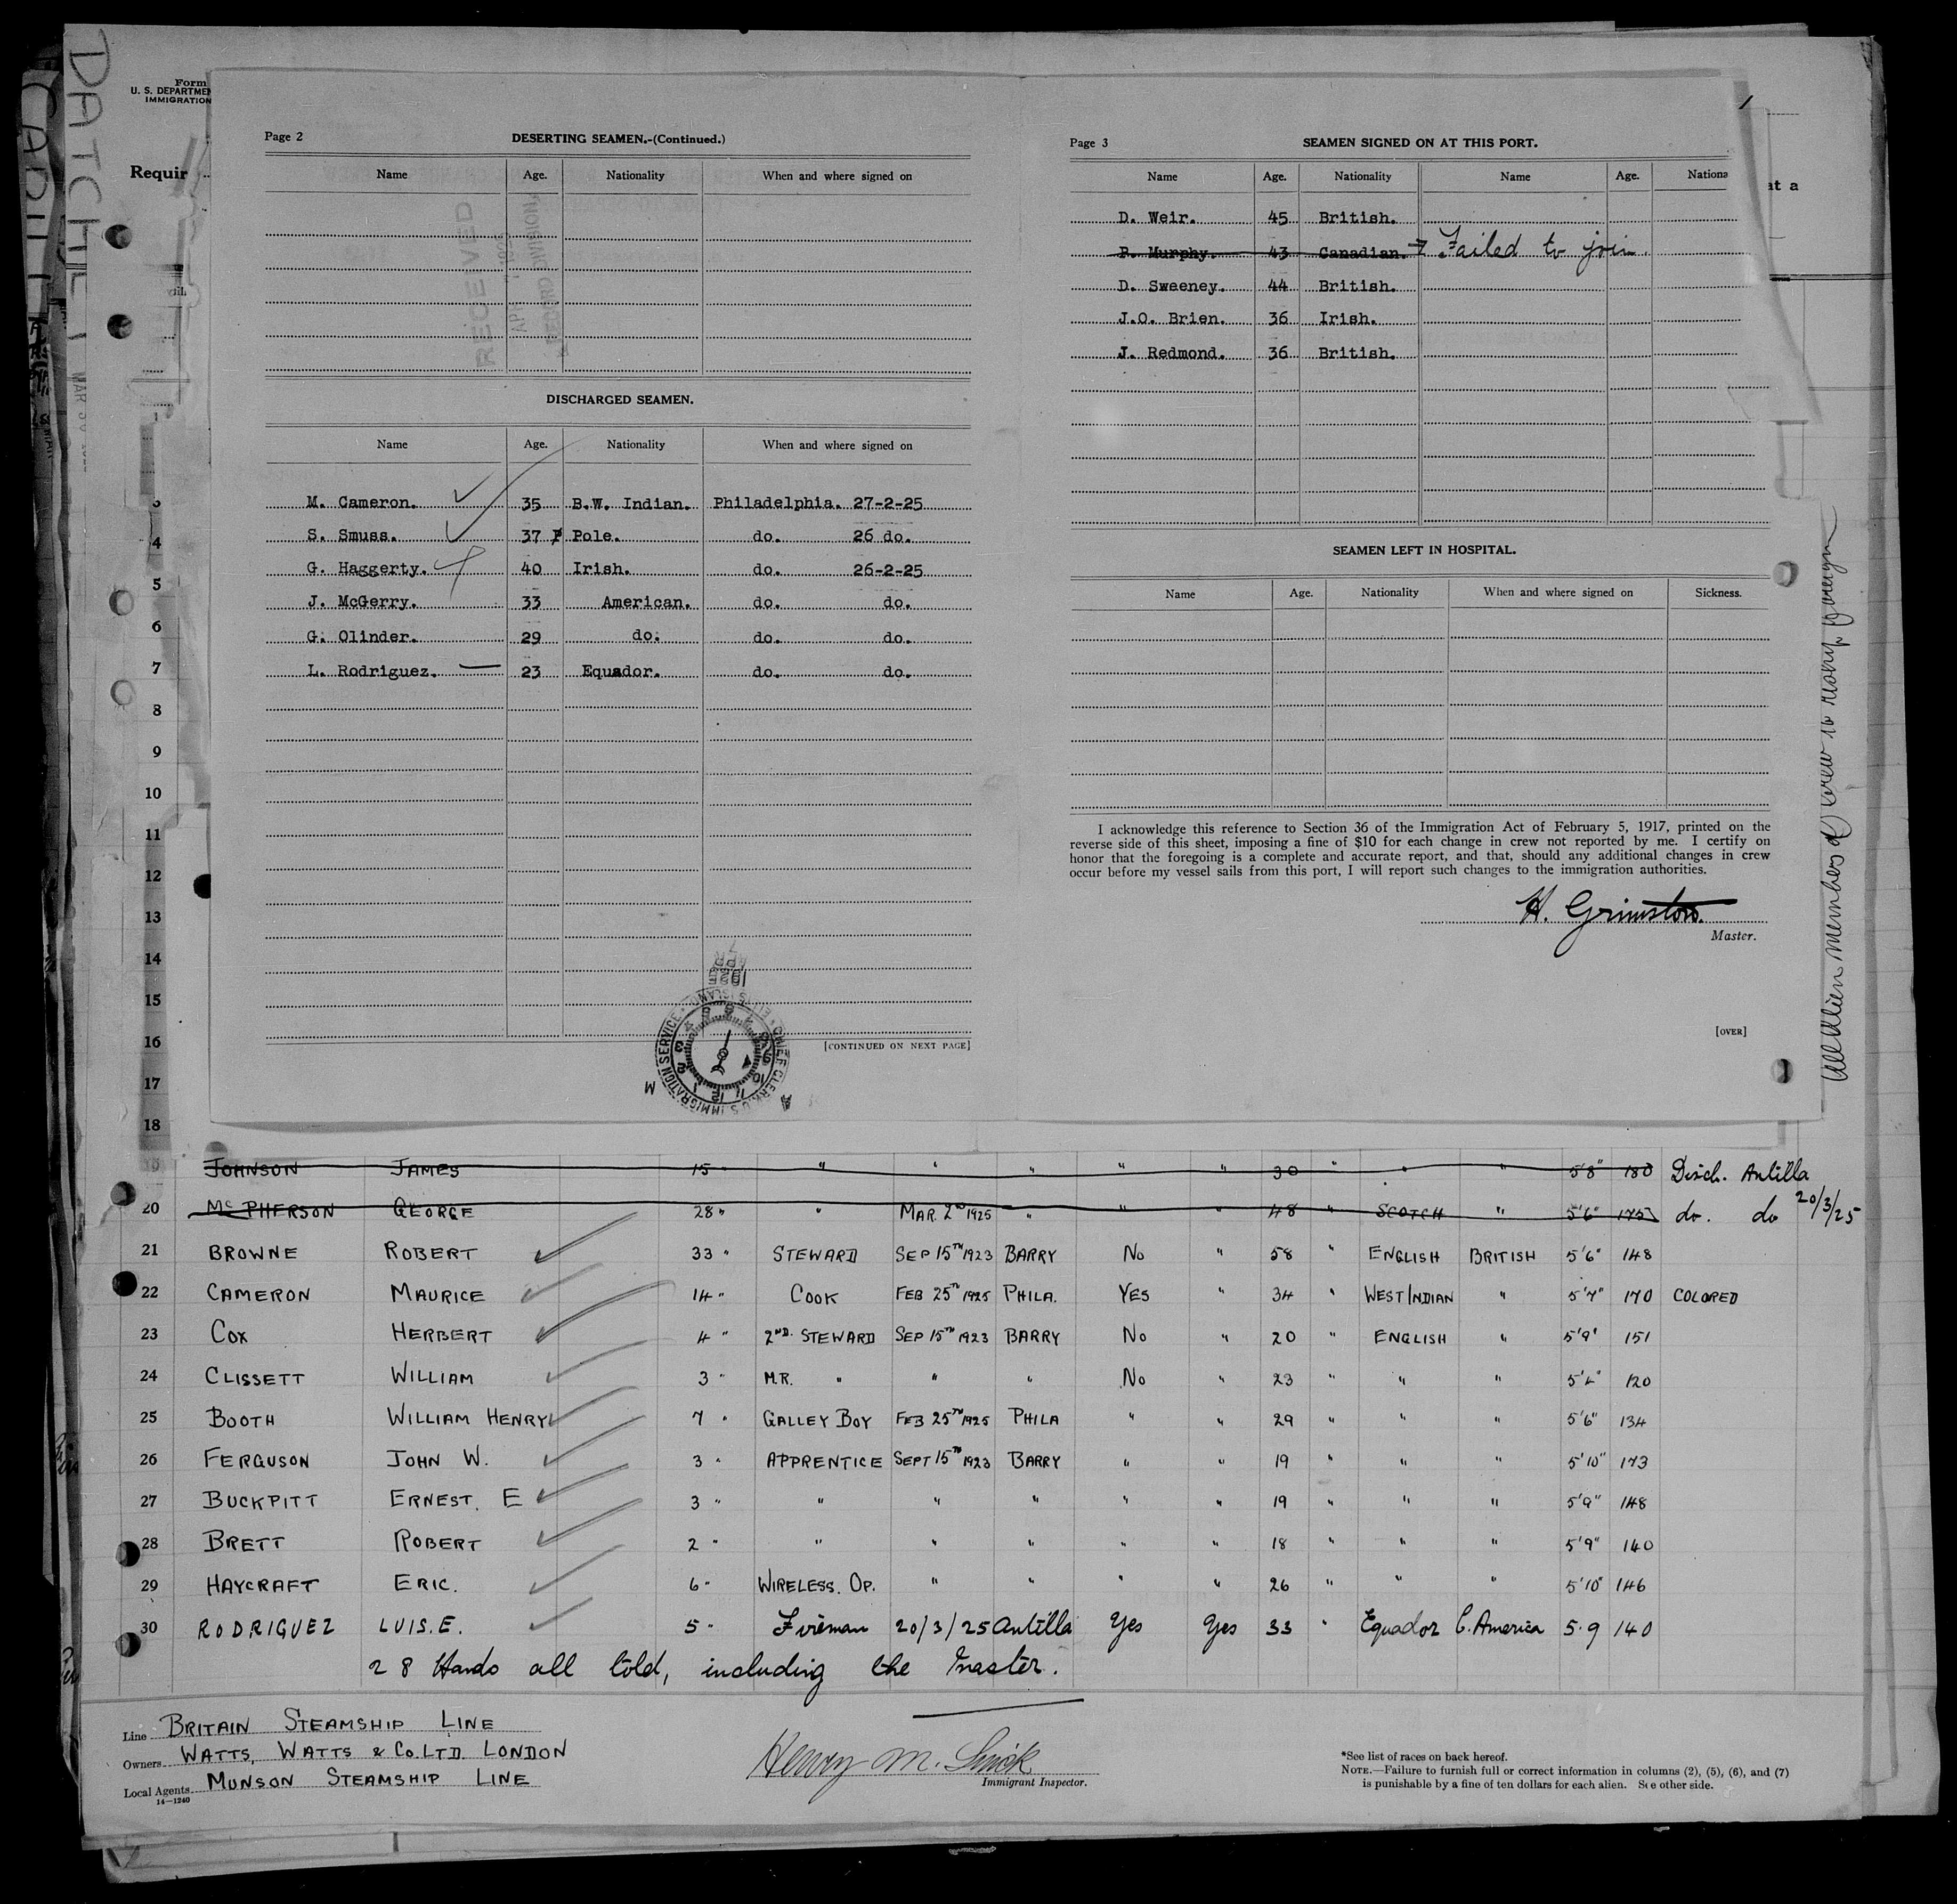 DATCHET
Form
U. S. DEPARTMEN
IMMIGRATION
Requir
at a
Page 2
DESERTING SEAMEN.-(Continued.)
Name Age. Nationality When and where signed on
RECEIVED
DISCHARGED SEAMEN.
Name Age. Nationality When and where signed on
M. Cameron. 35 B.W. Indian. Philadelphia. 27-2-25
S. Smuss. 37 P Pole. do. 26 do.
G. Haggerty. 40 Irish. do. 26-2-25
J. McGerry. 33 American. do. do.
G. Olinder. 29 do. do. do.
L. Rodriguez. 23 Equador. do. do.
[CONTINUED ON NEXT PAGE]
Page 3
SEAMEN SIGNED ON AT THIS PORT.
Name Age. Nationality Name Age. Nationa
D. Weir. 45 British.
P. Murphy. 43 Canadian. Failed to join.
D. Sweeney. 44 British.
J.O. Brien. 36 Irish.
J. Redmond. 36 British.
SEAMEN LEFT IN HOSPITAL.
Name Age. Nationality When and where signed on Sickness.
I acknowledge this reference to Section 36 of the Immigration Act of February 5, 1917, printed on the
reverse side of this sheet, imposing a fine of $10 for each change in crew not reported by me. I certify on
honor that the foregoing is a complete and accurate report, and that, should any additional changes in crew
occur before my vessel sails from this port, I will report such changes to the immigration authorities.
H. Grimston.
Master.
[OVER]
All Alien members of crew to reship foreign
4
5
6
7
8
9
10
11
12
13
14
15
16
17
18
JOHNSON JAMES 15 " " " " " " 30 " " " 5'8" 180 Disch. Antilla
20 McPHERSON GEORGE 28 " " MAR. 2nd 1925 " " " 48 " SCOTCH " 5'6" 175 do. do 20/3/25
21 BROWNE ROBERT 33 " STEWARD SEP 15TH 1923 BARRY No " 58 " ENGLISH BRITISH 5'6" 148
22 CAMERON MAURICE 14 " COOK FEB 25TH 1925 PHILA. YES " 34 " WEST INDIAN " 5'7" 170 COLORED
23 COX HERBERT 4 " 2ND. STEWARD SEP 15TH 1923 BARRY No " 20 " ENGLISH " 5'9" 151
24 CLISSETT WILLIAM 3 " M.R. " " " No " 23 " " " 5'4" 120
25 BOOTH WILLIAM HENRY 7 " GALLEY BOY FEB 25TH 1925 PHILA " " 29 " " " 5'6" 134
26 FERGUSON JOHN W. 3 " APPRENTICE SEPT 15TH 1923 BARRY " " 19 " " " 5'10" 173
27 BUCKPITT ERNEST. E 3 " " " " " " 19 " " " 5'9" 148
28 BRETT ROBERT 2 " " " " " " 18 " " " 5'9" 140
29 HAYCRAFT ERIC. 6 " WIRELESS. OP. " " " " 26 " " " 5'10" 146
30 RODRIGUEZ LUIS. E. 5 " Fireman 20/3/25 Antilla Yes Yes 33 " Equador C. America 5.9 140
28 Hands all told, including the Master.
Line BRITAIN STEAMSHIP LINE
Owners WATTS, WATTS & CO. LTD. LONDON
Local Agents MUNSON STEAMSHIP LINE
14—1240
Henry M. Smick
Immigrant Inspector.
*See list of races on back hereof.
NOTE.—Failure to furnish full or correct information in columns (2), (5), (6), and (7)
is punishable by a fine of ten dollars for each alien. See other side.